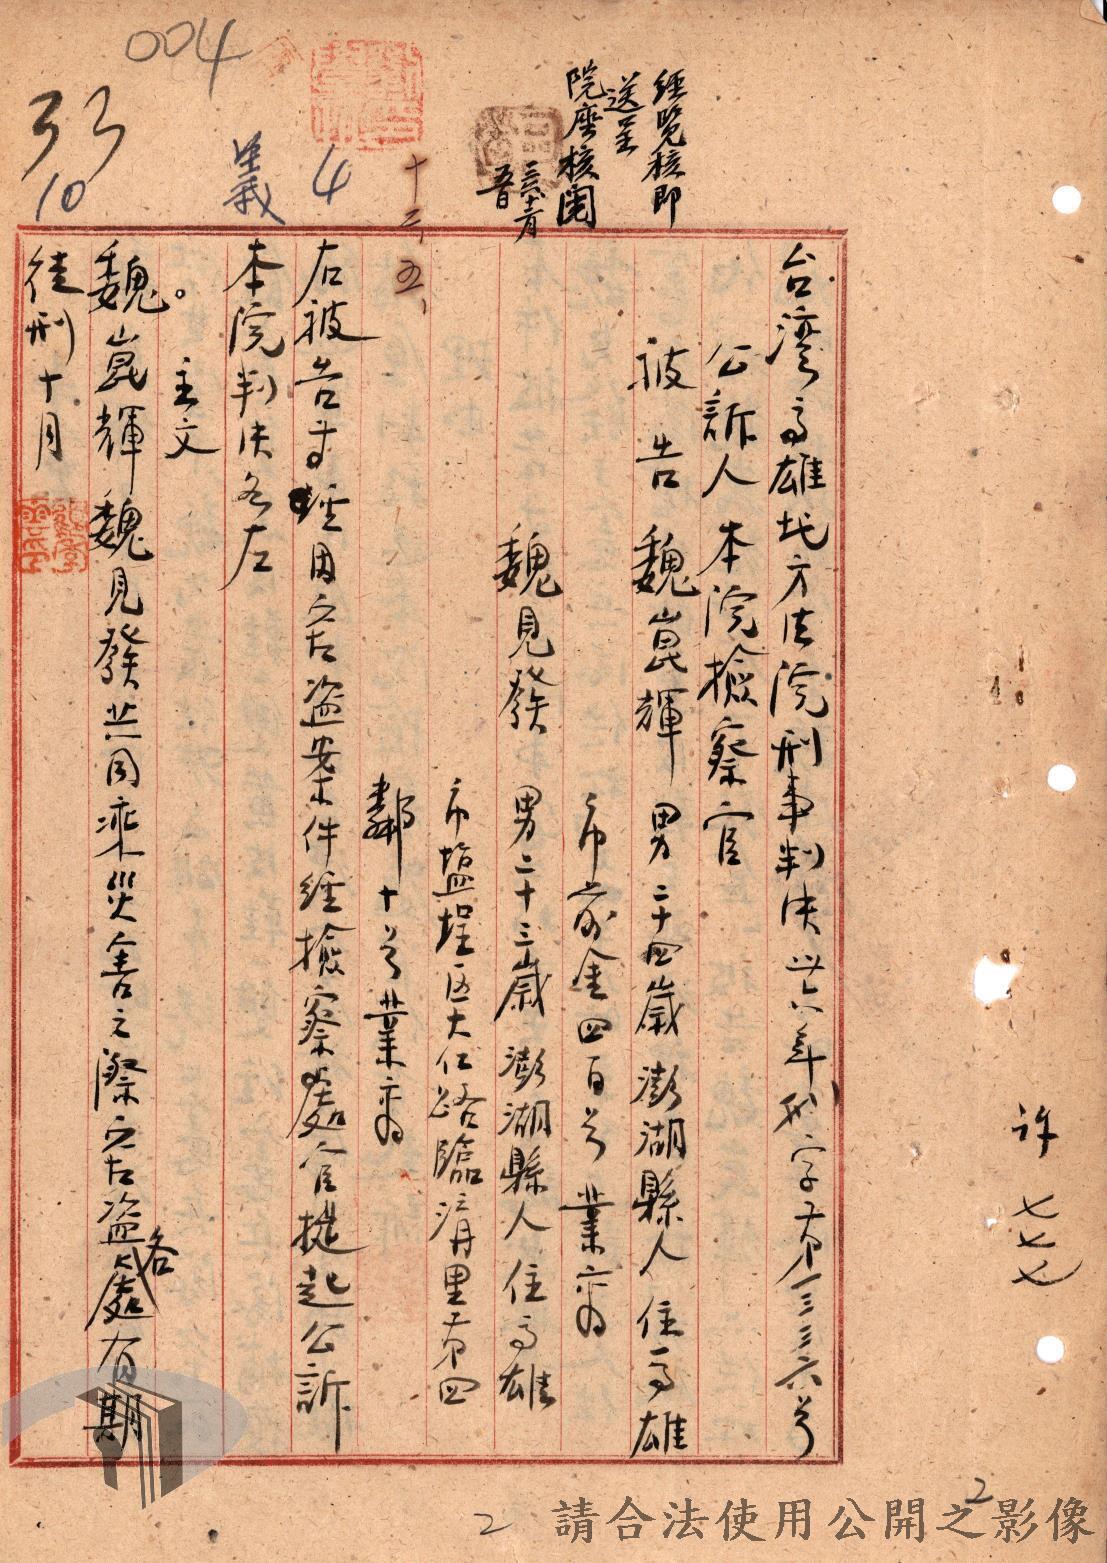 004
33
10
4
十二、五、
經覽核即
送呈
院座核閱
台湾高雄地方法院刑事判決卅六年刑字第一三三六号
公訴人本院檢察官
被告 魏崑輝 男二十四歲澎湖縣人住高雄
市前金四百号業商
魏見發 男二十三歲澎湖縣人住高雄
市塩埕区大仁路臨清里第四
鄰十号業商
右被告等因窃盜案件經檢察官提起公訴
本院判決如左
主文
魏崑輝魏見發共同乘災害之際窃盜各處有期
徒刑十月
許
七七七
2
2
請合法使用公開之影像